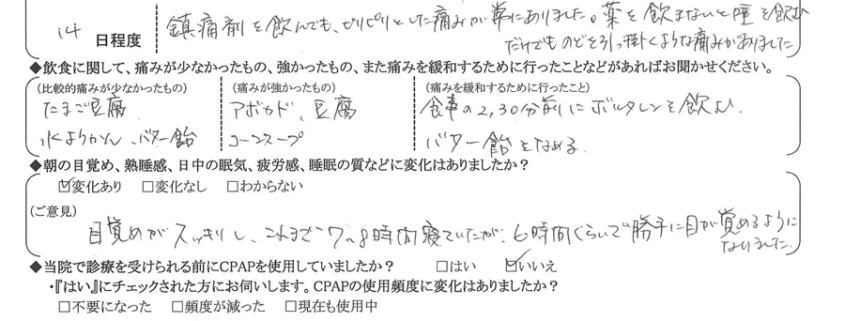 14 日程度
鎮痛剤を飲んでも、ピリピリとした痛みが常にありました。薬を飲まないと唾を飲む
だけでものどを引っ掛くような痛みがありました
◆飲食に関して、痛みが少なかったもの、強かったもの、また痛みを緩和するために行ったことなどがあればお聞かせください。
(比較的痛みが少なかったもの) (痛みが強かったもの) (痛みを緩和するために行ったこと)
たまご豆腐 アボカド、豆腐 食事の2,30分前にボルタレンを飲む、
水ようかん、バター飴 コーンスープ バター飴をなめる
◆朝の目覚め、熟睡感、日中の眠気、疲労感、睡眠の質などに変化はありましたか?
☑変化あり □変化なし □わからない
(ご意見)
目覚めがスッキリし、これまで7〜8時間寝ていたが、6時間ぐらいで勝手に目が覚めるように
なりました。
◆当院で診療を受けられる前にCPAPを使用していましたか? □はい ☑いいえ
・『はい』にチェックされた方にお伺いします。CPAPの使用頻度に変化はありましたか?
□不要になった □頻度が減った □現在も使用中